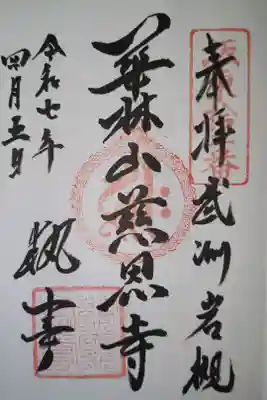 奉拝 武州岩槻
華林山慈恩寺
令和七年
四月五日
執事